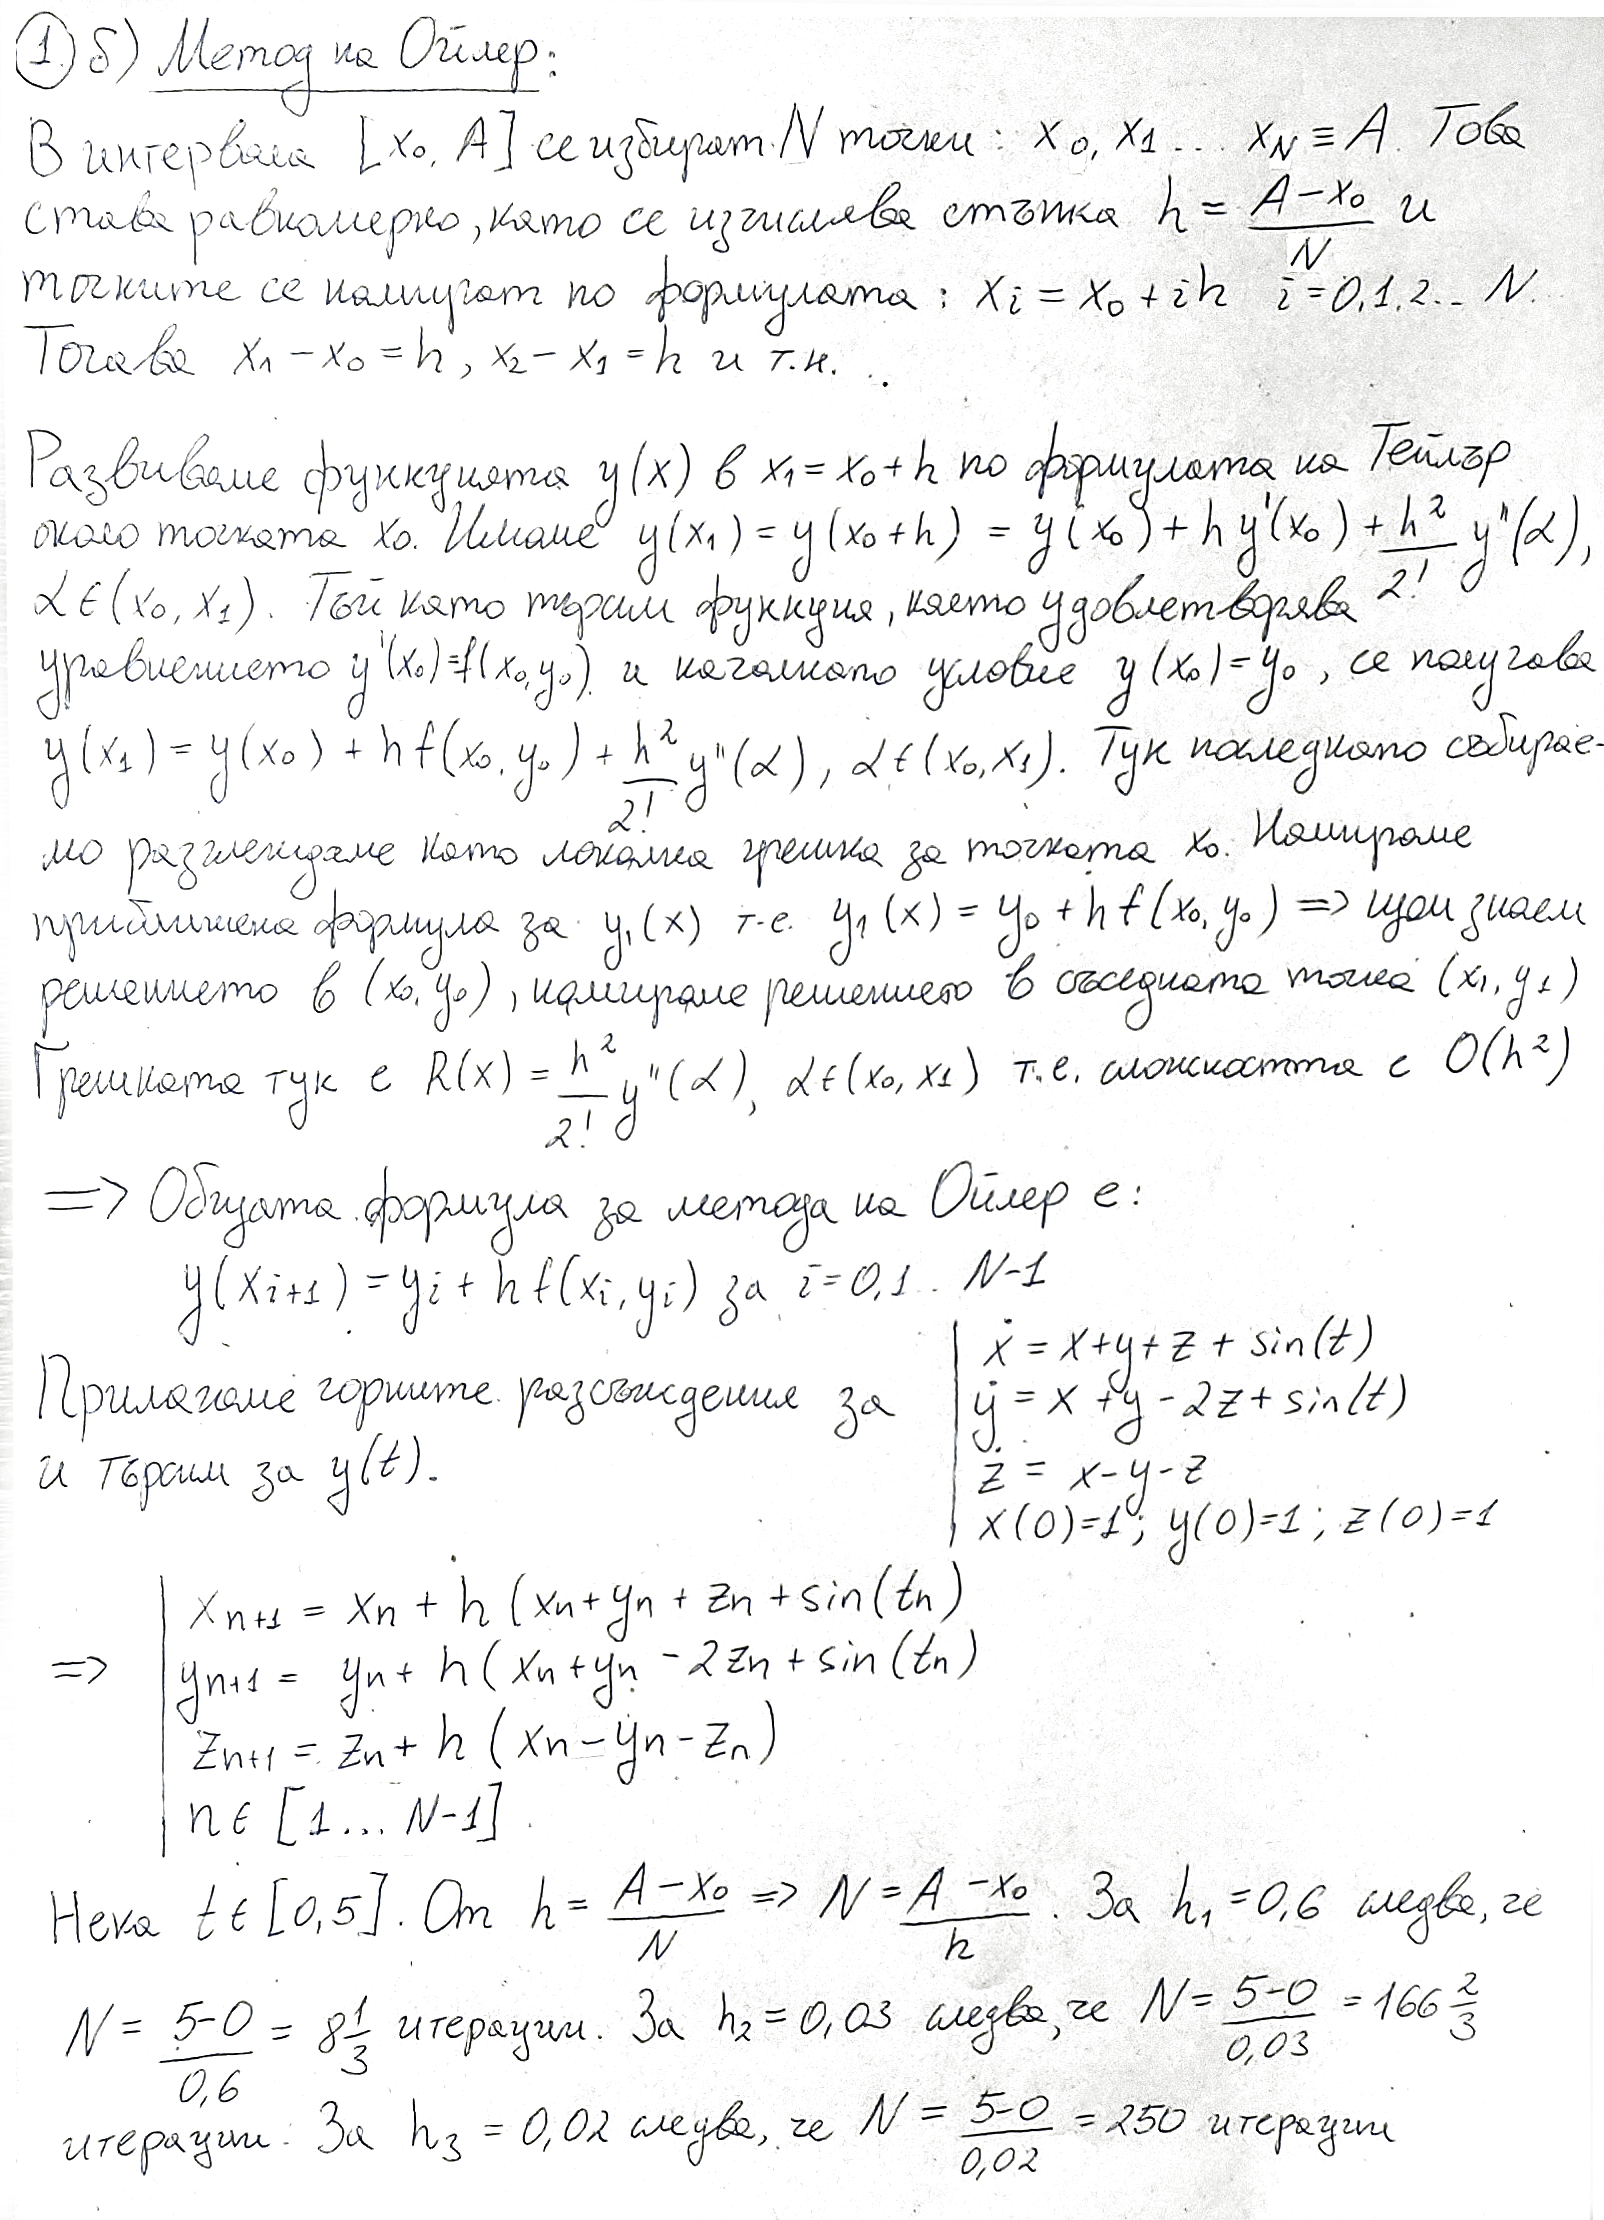 1. б) Метод на Ойлер:
В интервала [x₀, A] се избират N точки: x₀, x₁ ... x_N ≡ A. Това
става равномерно, като се изчислява стъпка h = (A - x₀)/N и
точките се намират по формулата: xᵢ = x₀ + ih i = 0,1,2... N.
Тогава x₁ - x₀ = h, x₂ - x₁ = h и т.н.
Развиваме функцията y(x) в x₁ = x₀ + h по формулата на Тейлър
около точката x₀. Имаме y(x₁) = y(x₀ + h) = y(x₀) + h y'(x₀) + h²/2! y''(α),
α ∈ (x₀, x₁). Тъй като търсим функция, която удовлетворява
уравнението y'(x₀) = f(x₀, y₀) и началното условие y(x₀) = y₀, се получава
y(x₁) = y(x₀) + h f(x₀, y₀) + h²/2! y''(α), α ∈ (x₀, x₁). Тук последното събирае-
мо разглеждаме като локална грешка за точката x₀. Намираме
приближена формула за y₁(x) т.е. y₁(x) = y₀ + h f(x₀, y₀) => щом знаем
решението в (x₀, y₀), намираме решението в съседната точка (x₁, y₁)
Грешката тук е R(x) = h²/2! y''(α), α ∈ (x₀, x₁) т.е. сложността е O(h²)
=> Общата формула за метода на Ойлер е:
y(xᵢ₊₁) = yᵢ + h f(xᵢ, yᵢ) за i = 0,1.. N-1
Прилагаме горните разсъждения за
и търсим за y(t).
ẋ = x + y + z + sin(t)
ẏ = x + y - 2z + sin(t)
ż = x - y - z
x(0)=1; y(0)=1; z(0)=1
xₙ₊₁ = xₙ + h (xₙ + yₙ + zₙ + sin(tₙ)
=> yₙ₊₁ = yₙ + h (xₙ + yₙ - 2zₙ + sin(tₙ)
zₙ₊₁ = zₙ + h (xₙ - yₙ - zₙ)
n ∈ [1... N-1]
Нека t ∈ [0,5]. От h = (A - x₀)/N => N = (A - x₀)/h. За h₁ = 0,6 следва, че
N = (5-0)/0,6 = 8 1/3 итерации. За h₂ = 0,03 следва, че N = (5-0)/0,03 = 166 2/3
итерации. За h₃ = 0,02 следва, че N = (5-0)/0,02 = 250 итерации